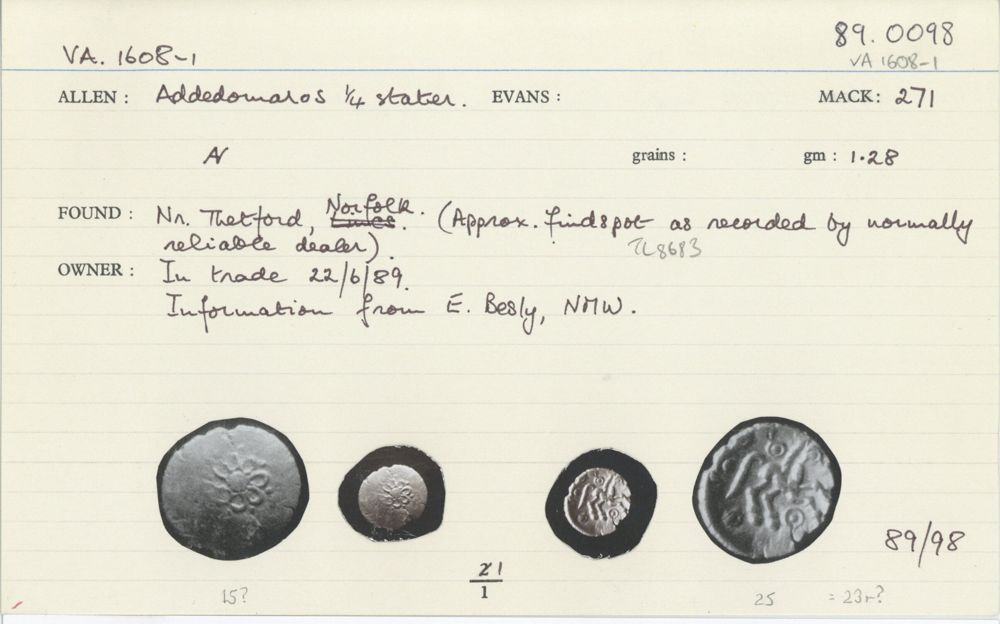 89.0098
VA. 1608-1
VA 1608-1
ALLEN : Addedomaros ¼ stater. EVANS : MACK: 271
N grains : gm : 1.28
FOUND : Nr. Thetford, Norfolk. (Approx. findspot as recorded by normally
reliable dealer). TL8683
OWNER : In trade 22/6/89.
Information from E. Besly, NMW.
89/98
1
1
15? 25 = 23r?